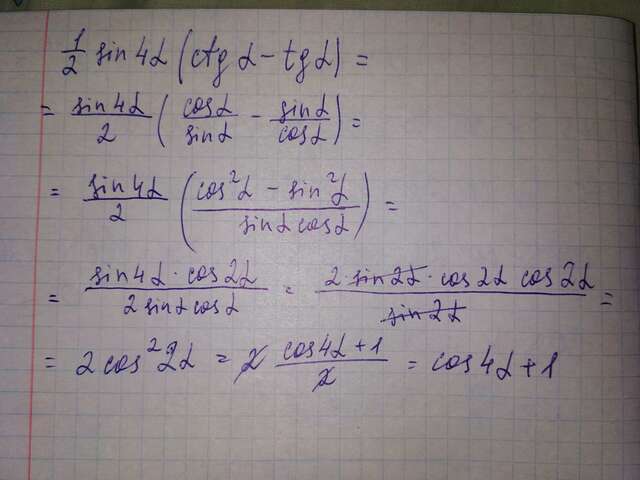 1/2 sin 4α (ctg α − tg α) =
= sin 4α / 2 (cos α / sin α − sin α / cos α) =
= sin 4α / 2 ((cos²α − sin²α) / (sin α cos α)) =
= (sin 4α · cos 2α) / (2 sin α cos α) = (2 · sin 2α · cos 2α cos 2α) / (sin 2α) =
= 2 cos² 2α = 2 (cos 4α + 1) / 2 = cos 4α + 1